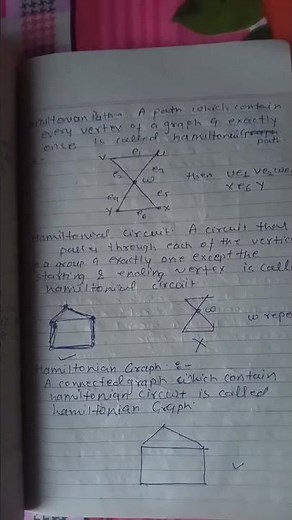 miltonian Path:- A path which contain
every vertex of a graph G exactly
once is called hamiltonian
path.
V e1 U
e2 e3
w
e4 e5
Y e6 X
then ue1 ve2 we
x e6 y
Hamiltonial circuit: A circuit that
passes through each of the vertice
in a group G exactly one except the
starting & ending vertex is calle
hamiltonial circuit
w
w repe
X
Hamiltonian Graph :-
A connected graph which contain
hamiltonian circuit is called
hamiltonian Graph